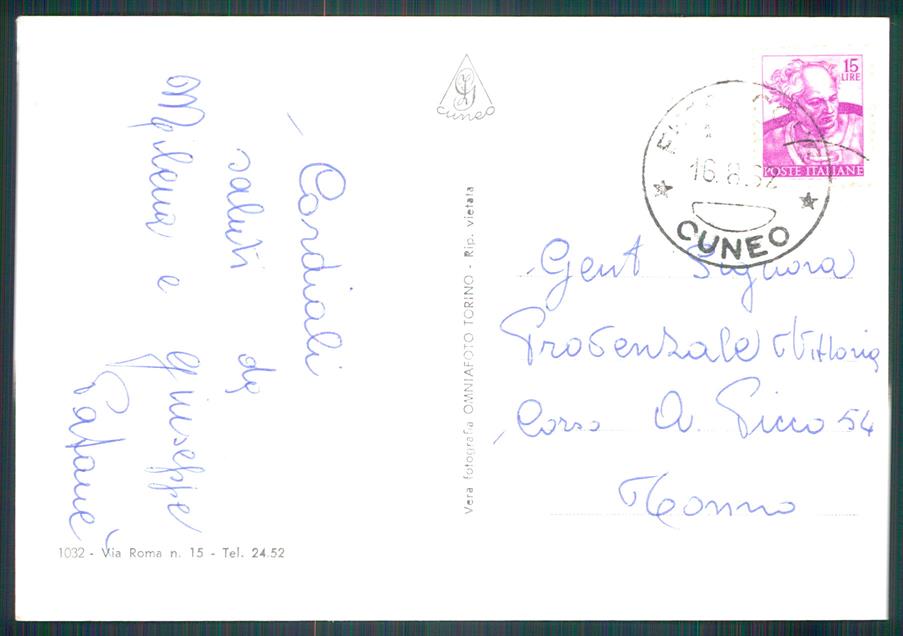 Cordiali
saluti da
Milena e Giuseppe
Patané
CUNEO
15
LIRE
POSTE ITALIANE
16.8.62
CUNEO
Gent Signora
Provenzale Vittoria
Corso A. Picco 54
Vera fotografia OMNIAFOTO TORINO - Rip. vietata
1032 - Via Roma n. 15 - Tel. 24.52